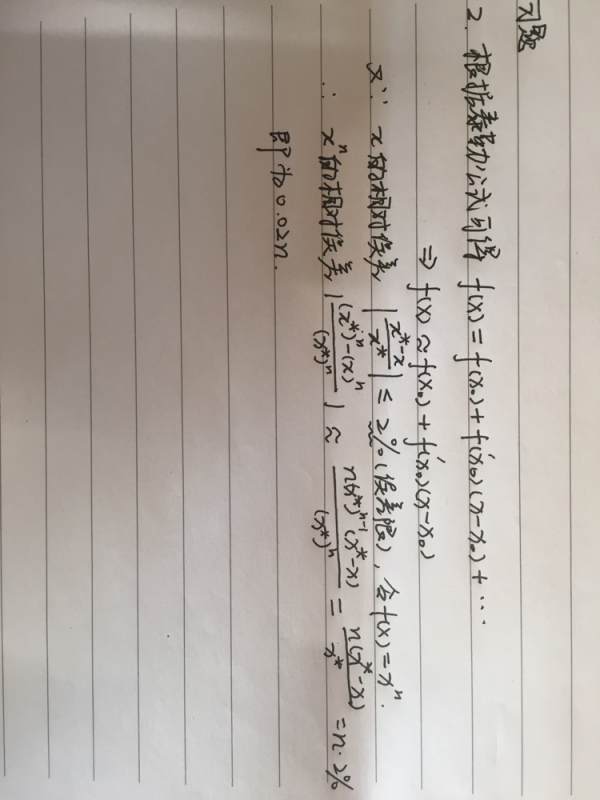 习题
2. 根据泰勒公式可得 f(x) = f(x₀) + f'(x₀)(x-x₀) + ...
⇒ f(x) ≈ f(x₀) + f'(x₀)(x-x₀)
又∵ x的相对误差 |(x*-x)/x*| ≤ 2%(误差限), 令f(x) = xⁿ.
∴ xⁿ的相对误差 |((x*)ⁿ-(x)ⁿ)/(x*)ⁿ| ≈ n(x*)ⁿ⁻¹(x*-x)/(x*)ⁿ = n(x*-x)/x* = n·2%
即为0.02n.